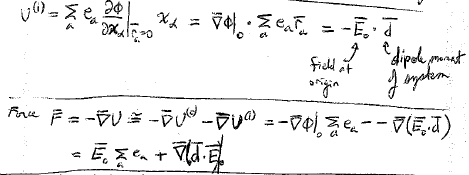 U⁽¹⁾ = Σₐ eₐ ∂Φ/∂x_α |_{r̄ₐ=0} x_α = ∇̄Φ|₀ · Σₐ eₐ r̄ₐ = -Ē₀ · d̄
field at origin
dipole moment of system
Force F̄ = -∇̄U ≅ -∇̄U⁽⁰⁾ - ∇̄U⁽¹⁾ = -∇̄Φ|₀ Σₐ eₐ - - ∇̄(Ē₀·d̄)
= Ē₀ Σₐ eₐ + ∇̄(d̄·Ē)|₀